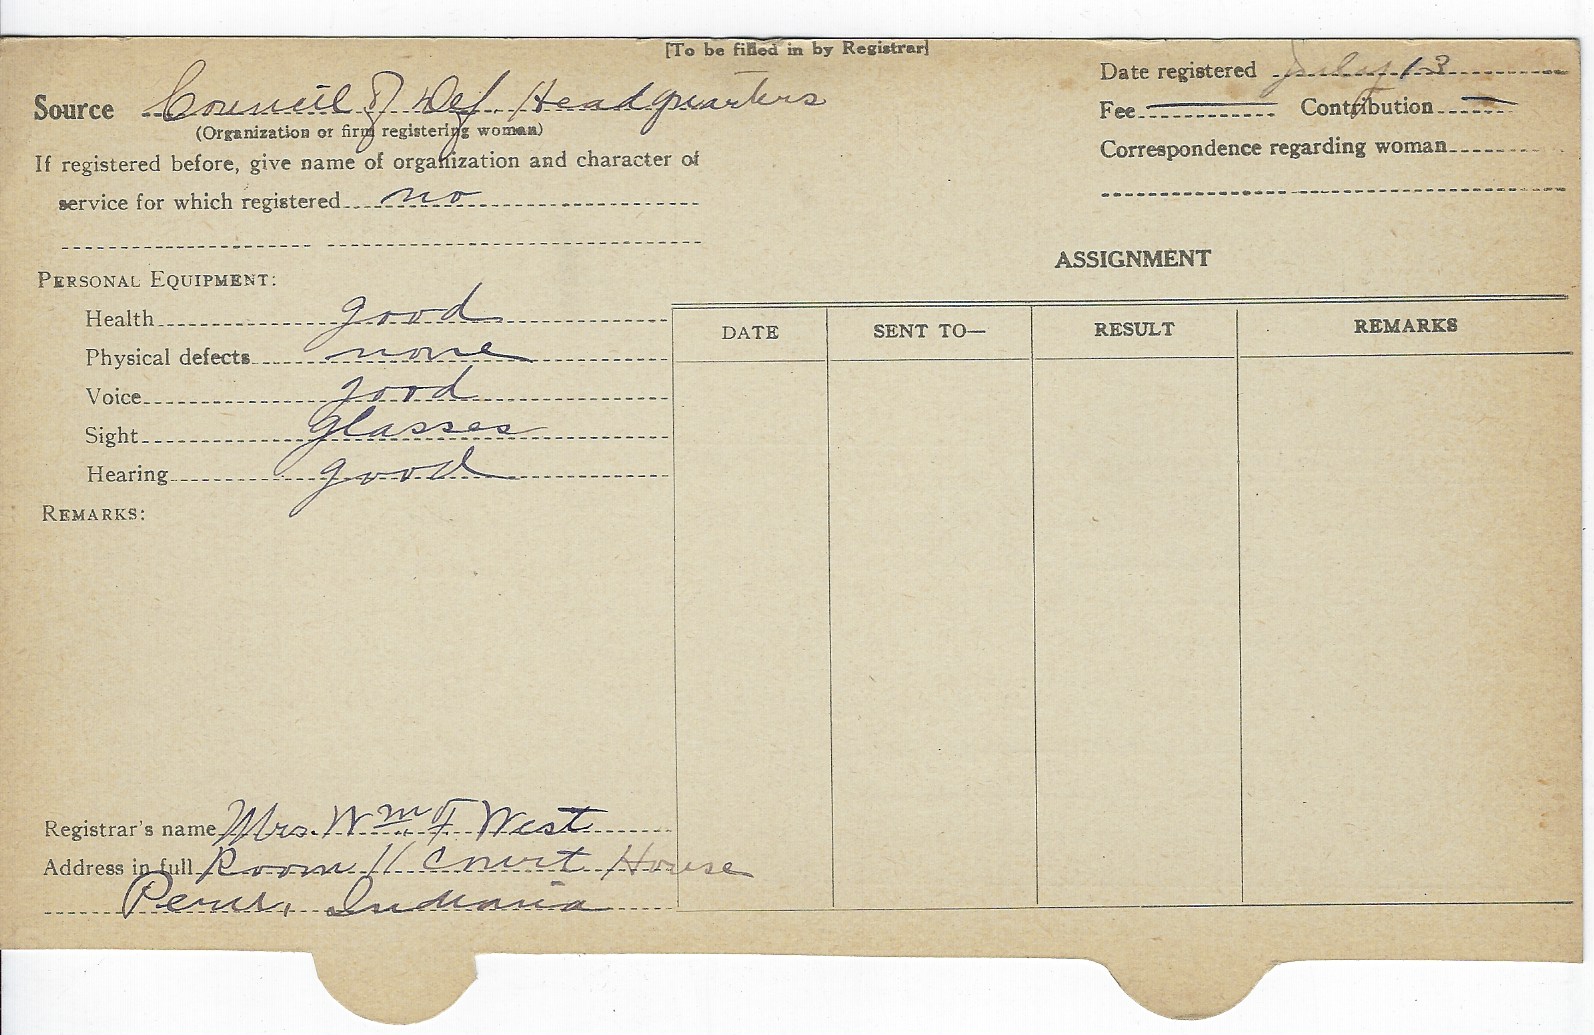 [To be filled in by Registrar]
Source Council of Def. Headquarters
(Organization or firm registering woman)
If registered before, give name of organization and character of
service for which registered no
Date registered July 13
Fee — Contribution —
Correspondence regarding woman
PERSONAL EQUIPMENT:
Health good
Physical defects none
Voice good
Sight Glasses
Hearing good
REMARKS:
ASSIGNMENT
DATE SENT TO— RESULT REMARKS
Registrar's name Mrs. Wm F. West
Address in full Room 11 Court House
Peru, Indiana